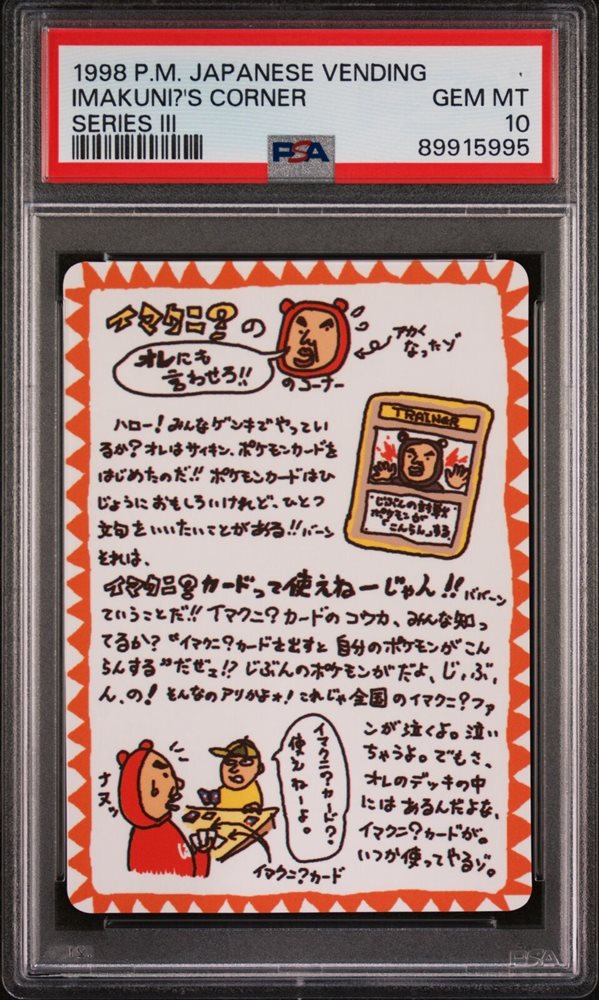 1998 P.M. JAPANESE VENDING
IMAKUNI?'S CORNER
GEM MT
SERIES III
10
PSA
89915995
イマクニ?の
オレにも
言わせろ!!
のコーナー
アカく
なったゾ
ハロー!みんなゲンキでやってい
るか?オレはサイキン、ポケモンカードを
はじめたのだ!!ポケモンカードはひ
じょうにおもしろいけれど、ひとつ
文句をいいたいことがある!!バーン
それは、
TRAINER
じぶんの対戦
ポケモンが
「こんらん」する
イマクニ?カードって使えねーじゃん!!ババーン
ていうことだ!!イマクニ?カードのコウカ、みんな知っ
てるか?“イマクニ?カードを出すと自分のポケモンがこん
らんする”だぜェ!?じぶんのポケモンがだよ、じ,ぶ,
ん,の!そんなのアリかよォ!これじゃ全国のイマクニ?ファ
ンが泣くよ。泣い
ちゃうよ。でもさ、
オレのデッキの中
にはあるんだよな、
イマクニ?カードが。
いつか使ってやるゾ。
イマクニ?カード?
使えねーよ。
ナヌッ
イマクニ?カード
PSA